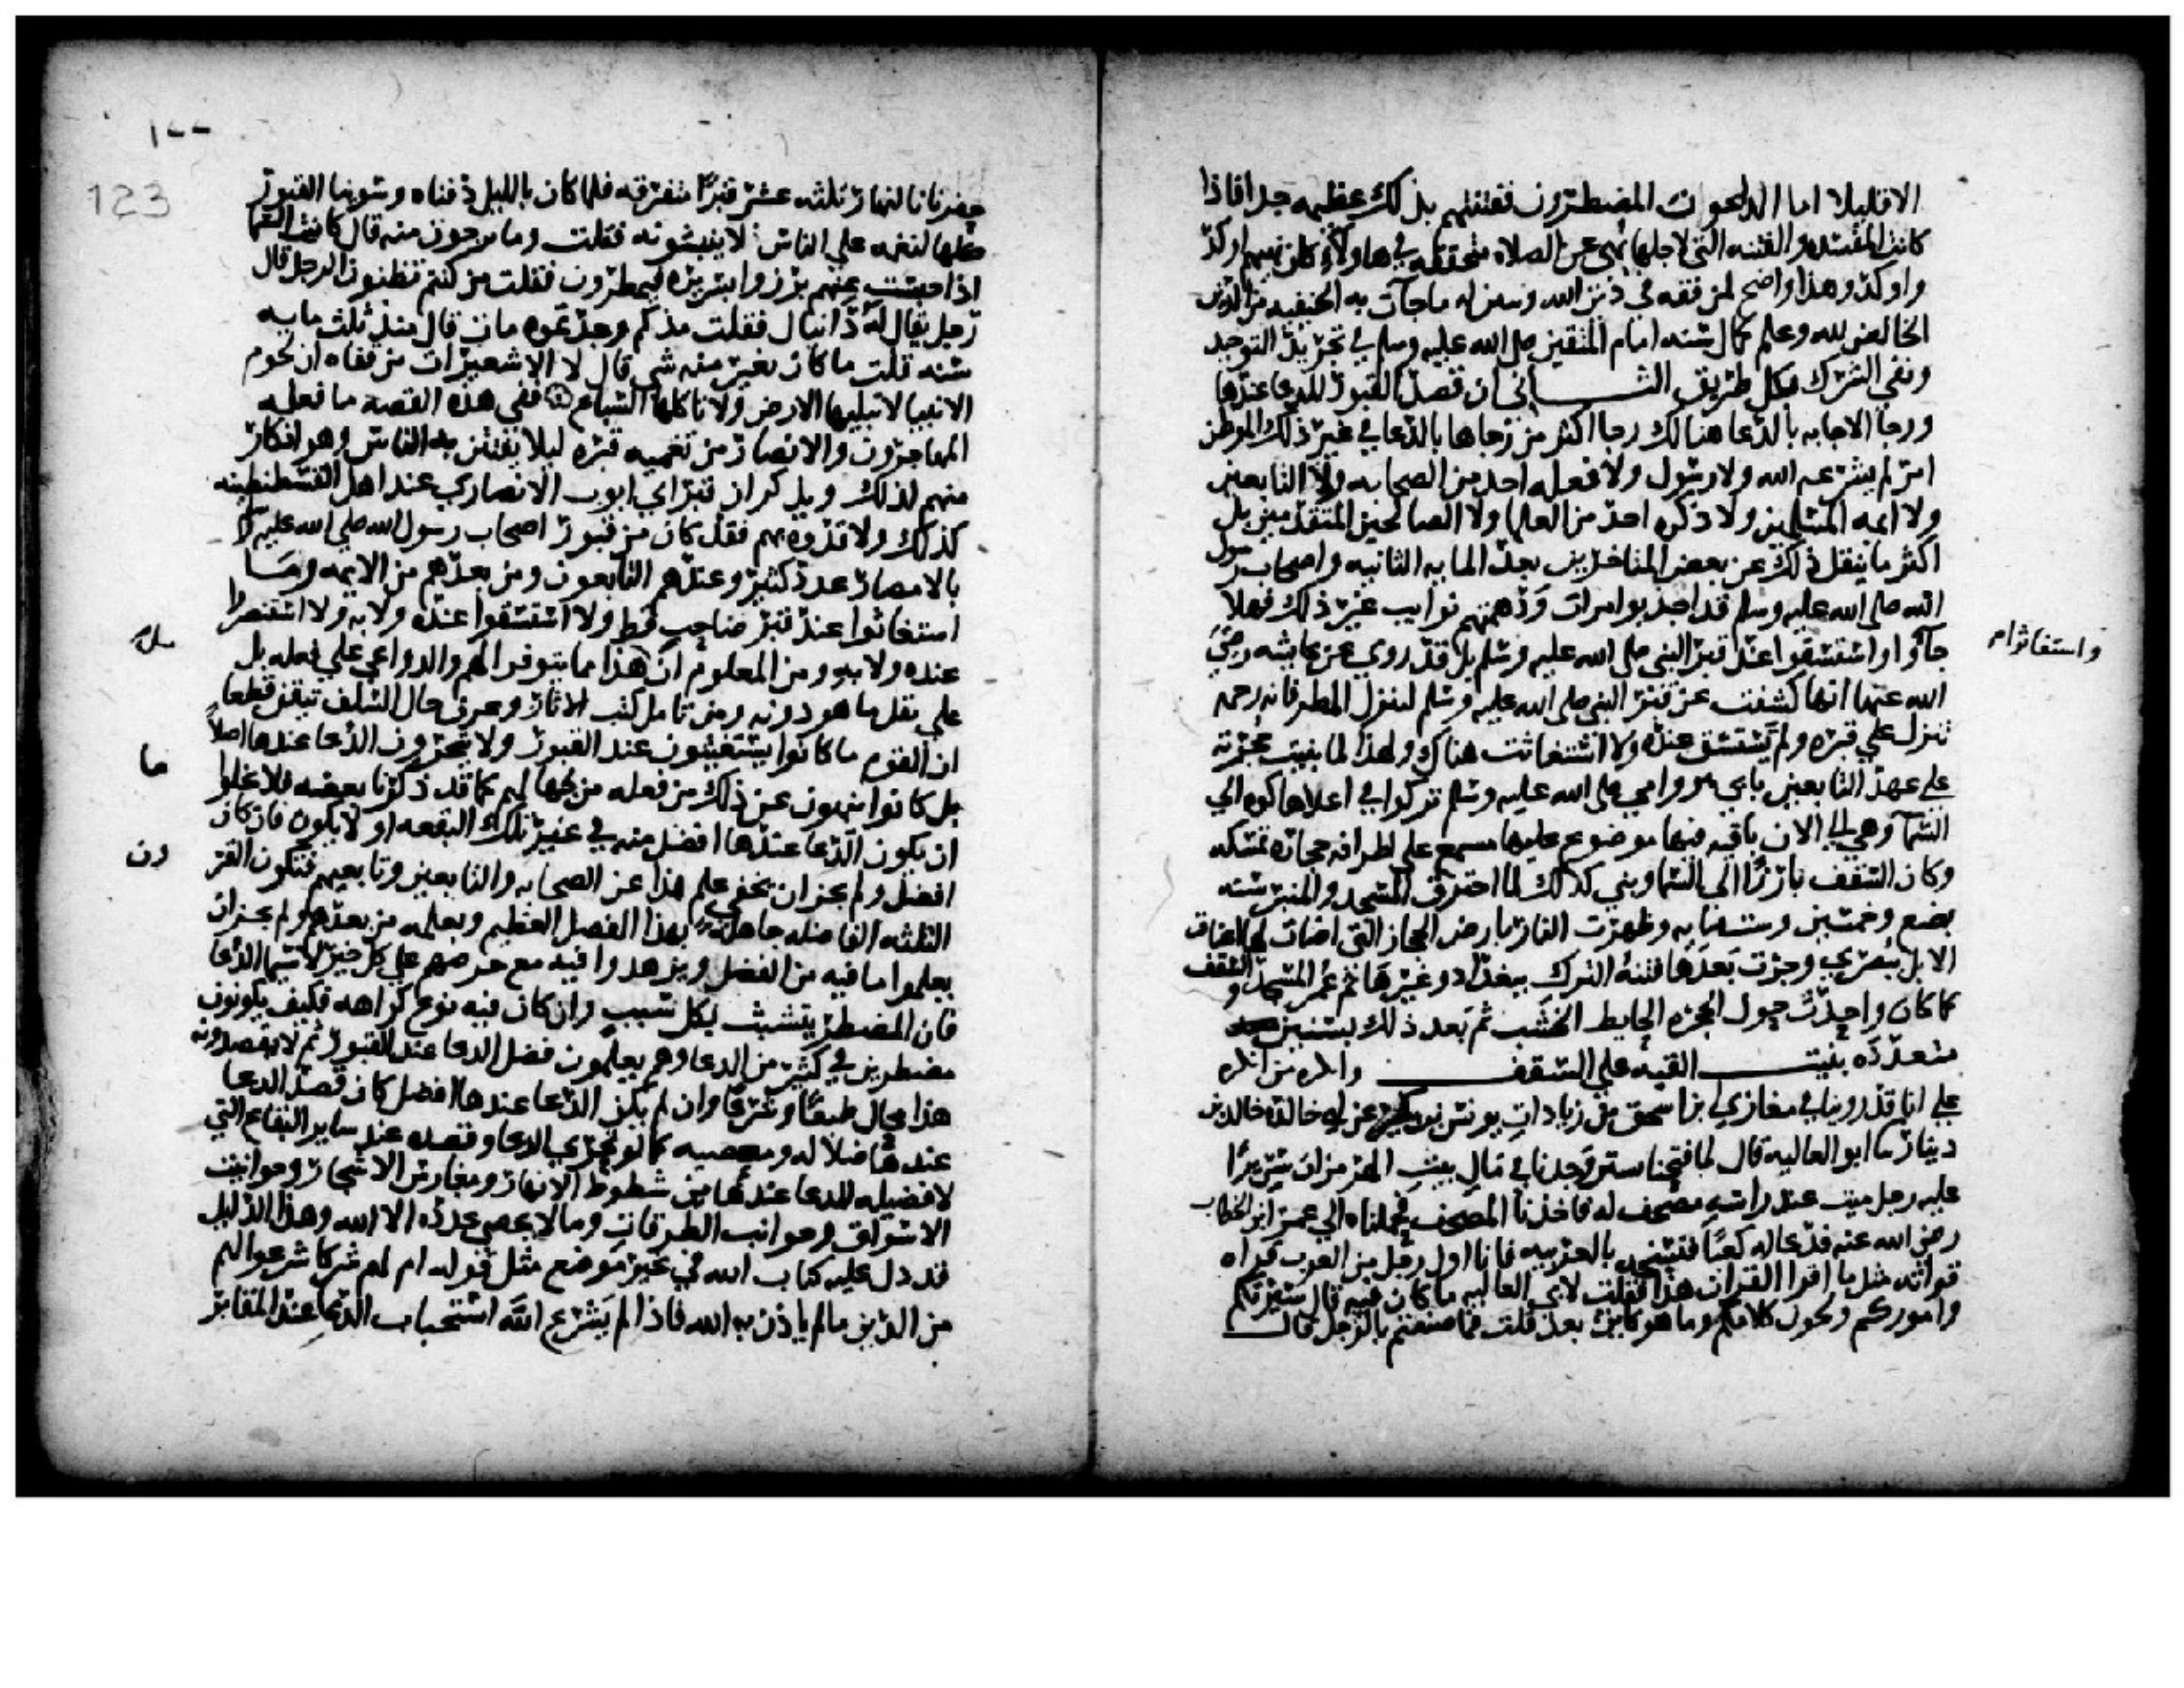 الا قليلا اما الداعون المضطرون ففتنتهم بذلك عظيمه جدا فاذا
كانت المفسده والفتنه التي لاجلها نهي عن الصلاه متحققه في هاولا كان نهيهم اوكد
واوكد وهذا واضح لمن فقه في دين الله وتبين له ماجآت به الحنيفيه من الدين
الخالص لله وعلم كمال سنه امام المتقين صلى الله عليه وسلم في تجريد التوحيد
ونفي الشرك بكل طريق الثــــاني ان قصد القبور للدعا عندها
ورجا الاجابه بالدعا هنالك رجا اكثر من رجاها بالدعا في غير ذلك الموطن
امر لم يشرعه الله ولا رسوله ولا فعله احد من الصحابه ولا التابعين
ولا ايمه المسلمين ولا ذكره احد من العلما ولا الصالحين المتقدمين بل
اكثر ما ينقل ذلك عن بعض المتاخرين بعد المايه الثانيه واصحاب رسول
الله صلى الله عليه وسلم قد اجدبوا مرات ودهمتهم نوايب غير ذلك فهلا
جآوا واستسقوا عند قبر النبي صلى الله عليه وسلم بل قد روي عن عايشه رضي
واستغاثوا
الله عنها انها كشفت عن قبر النبي صلى الله عليه وسلم لينزل المطر فانه رحمه
تنزل على قبره ولم تستسق عنده ولا استغاثت هناك ولهذا لما بنيت حجرته
على عهد التابعين بابي هو وامي صلى الله عليه وسلم تركوا في اعلاها كوه الي
السما وهي الي الان باقيه فيها موضوع عليها مشمع على اطرافه حجاره تمسكه
وكان السقف بارزا الى السما وبني كذلك لما احترق المسجد والمنبر سنه
بضع وخمسين وستمايه وظهرت النار بارض الحجاز التي اضات لها اعناق
الابل ببصري وجرت بعدها فتنه الترك ببغداد وغيرها ثم عمر المسجد والسقف
كما كان واحدث حول الحجره الحايط الخشب ثم بعد ذلك بسنين
متعدده بنيت القبه على السقف وانكره من انكره
على انا قد روينا في مغازي ابن اسحق من زيادات يونس بن بكير عن ابي خالده خالد بن
دينار ثنا ابو العاليه قال لما فتحنا تستر وجدنا في مال بيت الهرمزان سريرا
عليه رجل ميت عند راسه مصحف له فاخذنا المصحف فحملناه الي عمر ابن الخطاب
رضي الله عنه فدعا له كعبا فنسخه بالعربيه فانا اول رجل من العرب قراه
قراته مثل ما اقرا القران هذا فقلت لابي العاليه ما كان فيه قال سيرتكم
واموركم ولحون كلامكم وما هو كاين بعد قلت فما صنعتم بالرجل قال
١٢٢
123
حفرنا بالنهار ثلثه عشر قبرا متفرقه فلما كان بالليل دفناه وسوينا القبور
كلها لنعميه علي الناس لا ينبشونه فقلت وما يرجون منه قال كانت السما
اذا حبست عنهم برزوا بسريره فيمطرون فقلت من كنتم تظنون الرجل قال
رجل يقال له دانيال فقلت مذ كم وجدتموه مات قال منذ ثلث مايه
سنه قلت ما كان تغير منه شي قال لا الا شعيرات من قفاه ان لحوم
الانبيا لا تبليها الارض ولا تاكلها السباع ففي هذه القصه ما فعله
المهاجرون والانصار من تعميه قبره ليلا يفتتن به الناس وهو انكار
منهم لذلك ويذكر ان قبر ابي ايوب الانصاري عند اهل القسطنطينه
كذلك ولا قدوه بهم فقد كان من قبور اصحاب رسول الله صلى الله عليه وسلم
بالامصار عدد كثير وعندهم التابعون ومن بعدهم من الايمه وما
استغاثوا عند قبر صاحب قط ولا استسقوا عنده ولا به ولا استنصروا
عنده ولا به ومن المعلوم ان هذا مما تتوفر الهمم والدواعي على فعله بل
على نقل ما هو دونه ومن تامل كتب الاثار وعرف حال السلف تيقن قطعا
ان القوم ما كانوا يستغيثون عند القبور ولا يتحرون الدعا عندها اصلا
بل كانوا ينهون عن ذلك من فعله من جهالهم كما قد ذكرنا بعضه فلا يخلوا
ما
ان يكون الدعا عندها افضل منه في غير تلك البقعه او لا يكون فان كان
افضل ولم يجز ان يخفى علم هذا عن الصحابه والتابعين وتابعيهم فتكون القر
ون
الثلثه الفاضله جاهله بهذا الفضل العظيم ويعلمه من بعدهم ولم يجز ان
يعلموا ما فيه من الفضل ويزهدوا فيه مع حرصهم على كل خير لا سيما الدعا
فان المضطر يتشبث بكل سبب وان كان فيه نوع كراهه فكيف يكونون
مضطرين في كثير من الدعا وهم يعلمون فضل الدعا عند القبور ثم لا يقصدونه
هذا محال طبعا وشرعا وان لم يكن الدعا عندها افضل كان قصد الدعا
عندها ضلاله ومعصيه كما لو تحري الدعا وقصده عند ساير البقاع التي
لا فضيله للدعا عندها من شطوط الانهار ومغارس الاشجار وحوانيت
الاسواق وجوانب الطرقات وما لا يحصي عدده الا الله وهذا الدليل
قد دل عليه كتاب الله في غير موضع مثل قوله ام لهم شركا شرعوا لهم
من الدين ما لم ياذن به الله فاذا لم يشرع الله استحباب الدعا عند المقابر